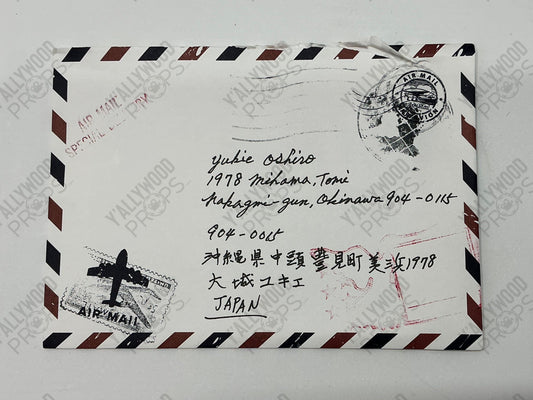 AIR MAIL
SPECIAL DELIVERY
AIR MAIL
PAR AVION
Yukie Oshiro
1978 Mihama, Tomi
Nakagmi-gun, Okinawa 904-0115
904-0015
沖縄県中頭 豊見町美浜1978
大城ユキエ
JAPAN
AIR MAIL
Y'ALLYWOOD
PROPS